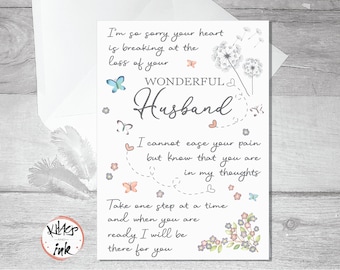 I'm so sorry your heart
is breaking at the
loss of your
WONDERFUL
Husband
I cannot ease your pain
but know that you are
in my thoughts
Take one step at a time
and when you are
ready I will be
there for you
ink